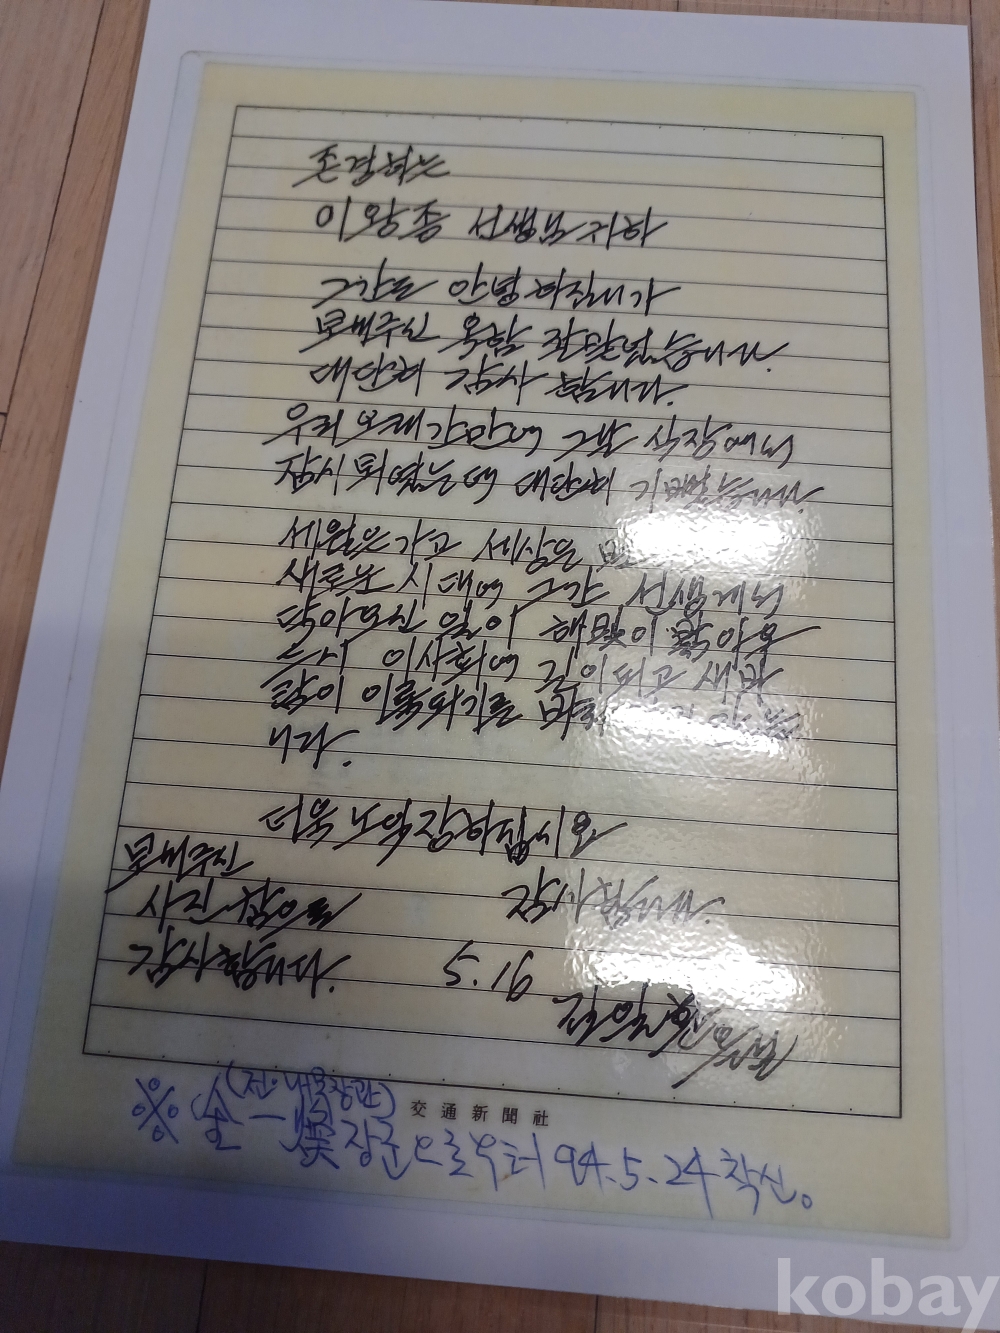 존경하는
이왕종 선생님 귀하
그간도 안녕하십니가
보내주신 옥함 잘 받었습니다.
대단히 감사합니다.
우리 오래간만에 그날 식장에서
잠시 뵈였는데 대단히 기뻤습니다.
세월은 가고 세상은
새로운 시대에 그간 선생께서
닦아오신 일이 햇빛이
이 사회에 길이 되고 새
이 이룩되기를
니다.
더욱 노익장하십시요
보내주신
사진 참으로
감사합니다.
감사합니다.
5. 16
交通新聞社
(전·내무장관)
※ 金一煥 장군으로부터 94.5.24 착신。
kobay